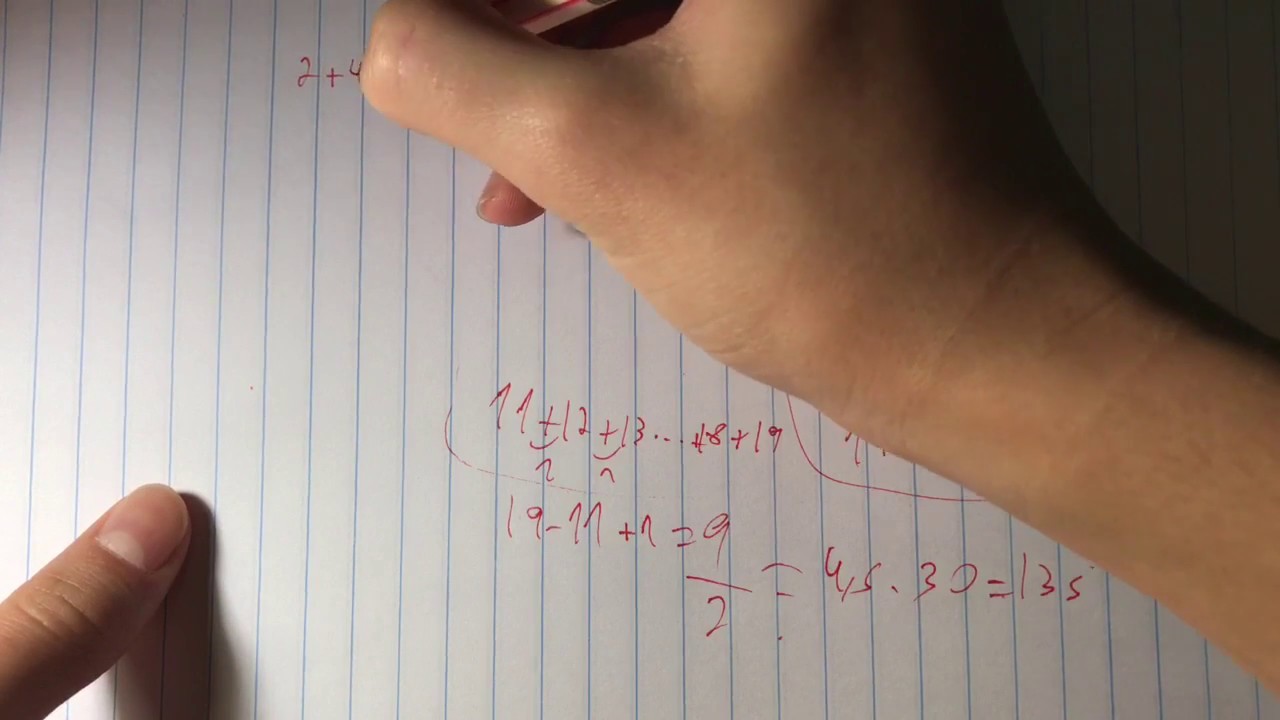 2+4
11+12+13...+18+19
1 1
19-11+1=9
9/2=4,5.30=135